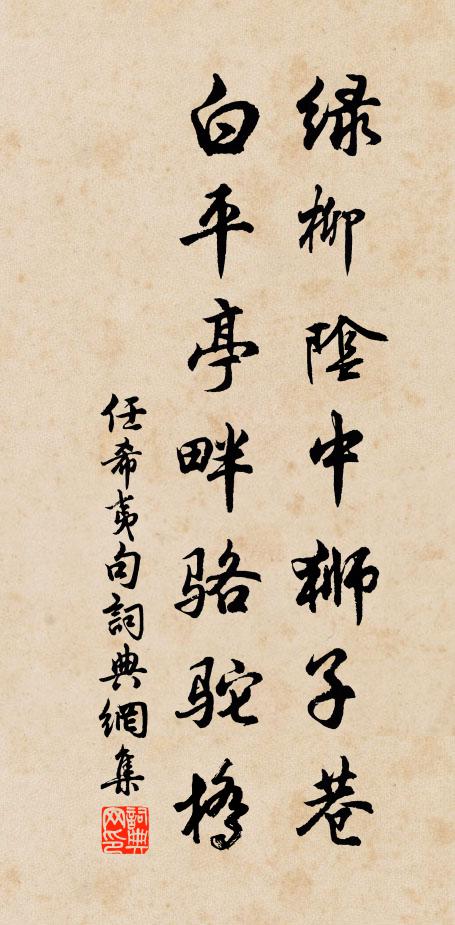 绿柳陰中獅子巷
白平亭畔骆驼橋
任希夷句詞典網集
詞典网印